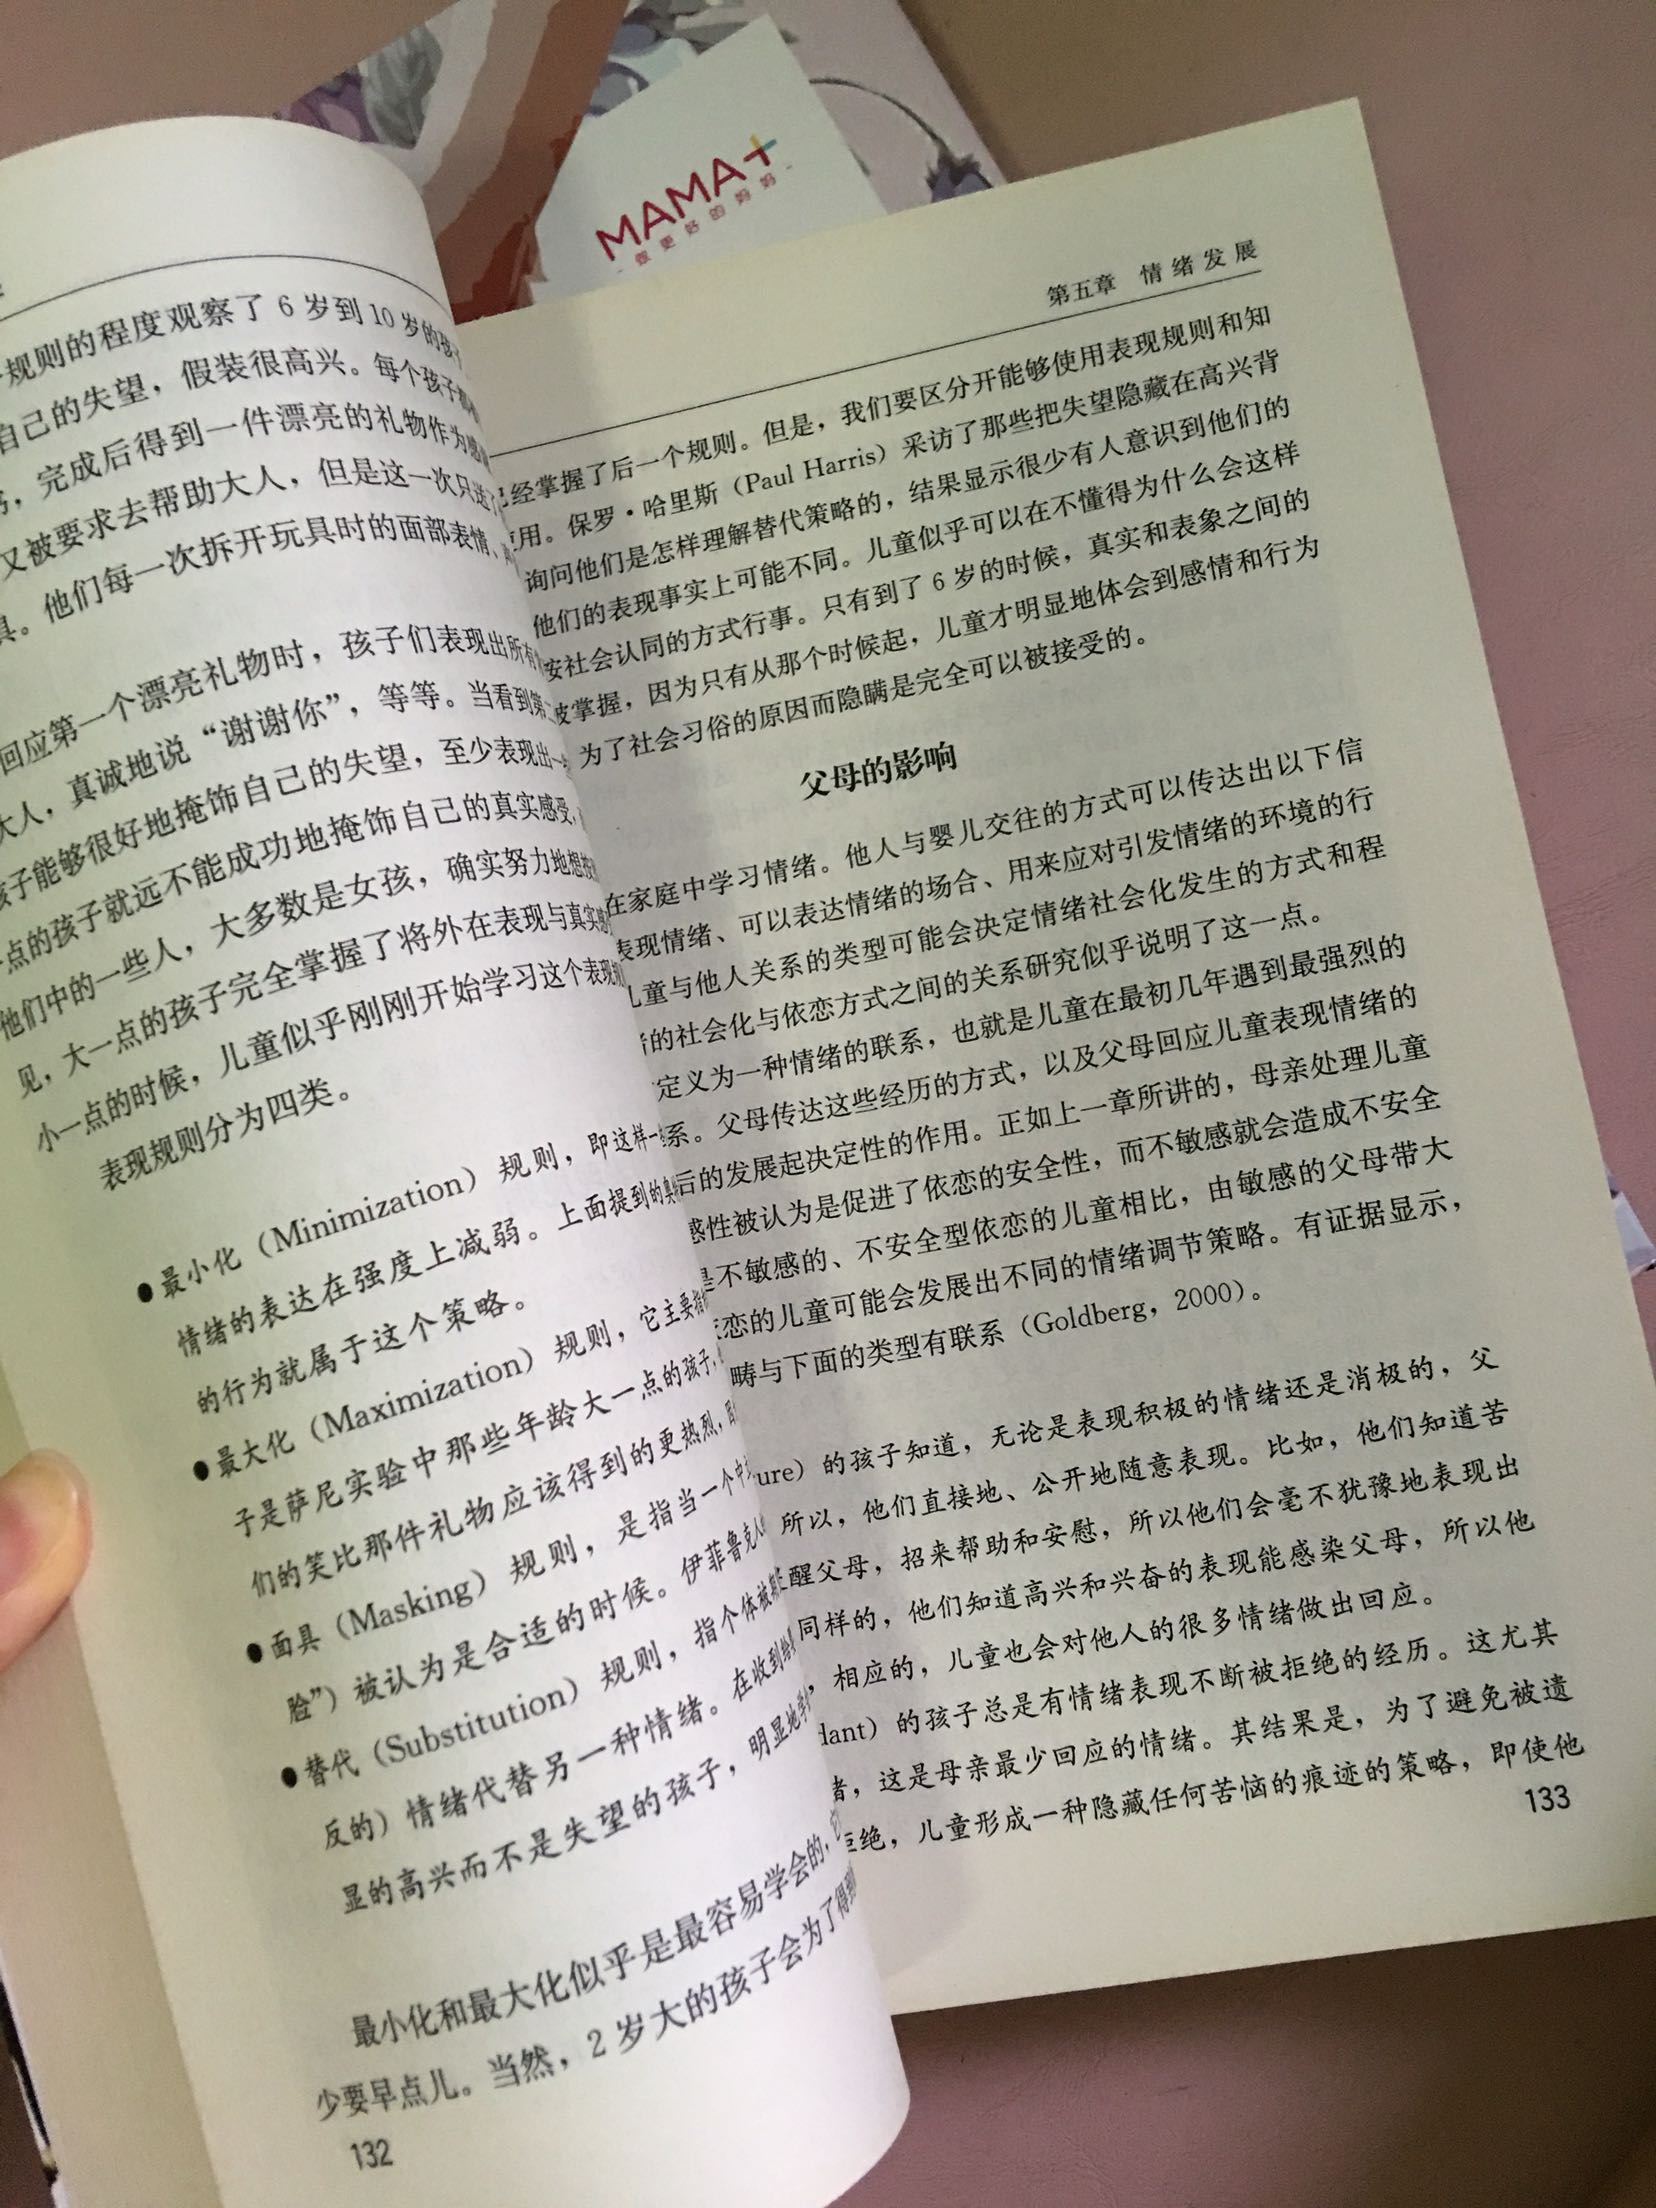 MAMA+
做更好的妈妈
规则的程度观察了 6 岁到 10 岁的孩
自己的失望，假装很高兴。每个孩子
，完成后得到一件漂亮的礼物作为
又被要求去帮助大人，但是这一次只
。他们每一次拆开玩具时的面部表情、
回应第一个漂亮礼物时，孩子们表现出所有
大人，真诚地说“谢谢你”，等等。当看到第
孩子能够很好地掩饰自己的失望，至少表现出一
点的孩子就远不能成功地掩饰自己的真实感受，
他们中的一些人，大多数是女孩，确实努力地想
见，大一点的孩子完全掌握了将外在表现与真实
小一点的时候，儿童似乎刚刚开始学习这个表现
表现规则分为四类。
●最小化（Minimization）规则，即这样一
情绪的表达在强度上减弱。上面提到的
的行为就属于这个策略。
●最大化（Maximization）规则，它主要指
子是萨尼实验中那些年龄大一点的孩子，
们的笑比那件礼物应该得到的更热烈，
●面具（Masking）规则，是指当一个中
脸”）被认为是合适的时候。伊菲鲁克人
●替代（Substitution）规则，指个体被期
反的）情绪代替另一种情绪。在收到
显的高兴而不是失望的孩子，明显地
最小化和最大化似乎是最容易学会的，
少要早点儿。当然，2 岁大的孩子会为了得到
132
第五章 情绪发展
经掌握了后一个规则。但是，我们要区分开能够使用表现规则和知
用。保罗·哈里斯（Paul Harris）采访了那些把失望隐藏在高兴背
询问他们是怎样理解替代策略的，结果显示很少有人意识到他们的
他们的表现事实上可能不同。儿童似乎可以在不懂得为什么会这样
安社会认同的方式行事。只有到了 6 岁的时候，真实和表象之间的
被掌握，因为只有从那个时候起，儿童才明显地体会到感情和行为
为了社会习俗的原因而隐瞒是完全可以被接受的。
父母的影响
在家庭中学习情绪。他人与婴儿交往的方式可以传达出以下信
表现情绪、可以表达情绪的场合、用来应对引发情绪的环境的行
儿童与他人关系的类型可能会决定情绪社会化发生的方式和程
的社会化与依恋方式之间的关系研究似乎说明了这一点。
定义为一种情绪的联系，也就是儿童在最初几年遇到最强烈的
系。父母传达这些经历的方式，以及父母回应儿童表现情绪的
后的发展起决定性的作用。正如上一章所讲的，母亲处理儿童
感性被认为是促进了依恋的安全性，而不敏感就会造成不安全
是不敏感的、不安全型依恋的儿童相比，由敏感的父母带大
恋的儿童可能会发展出不同的情绪调节策略。有证据显示，
畴与下面的类型有联系（Goldberg，2000）。
ure）的孩子知道，无论是表现积极的情绪还是消极的，父
所以，他们直接地、公开地随意表现。比如，他们知道苦
醒父母，招来帮助和安慰，所以他们会毫不犹豫地表现出
同样的，他们知道高兴和兴奋的表现能感染父母，所以他
，相应的，儿童也会对他人的很多情绪做出回应。
dant）的孩子总是有情绪表现不断被拒绝的经历。这尤其
者，这是母亲最少回应的情绪。其结果是，为了避免被遗
拒绝，儿童形成一种隐藏任何苦恼的痕迹的策略，即使他
133